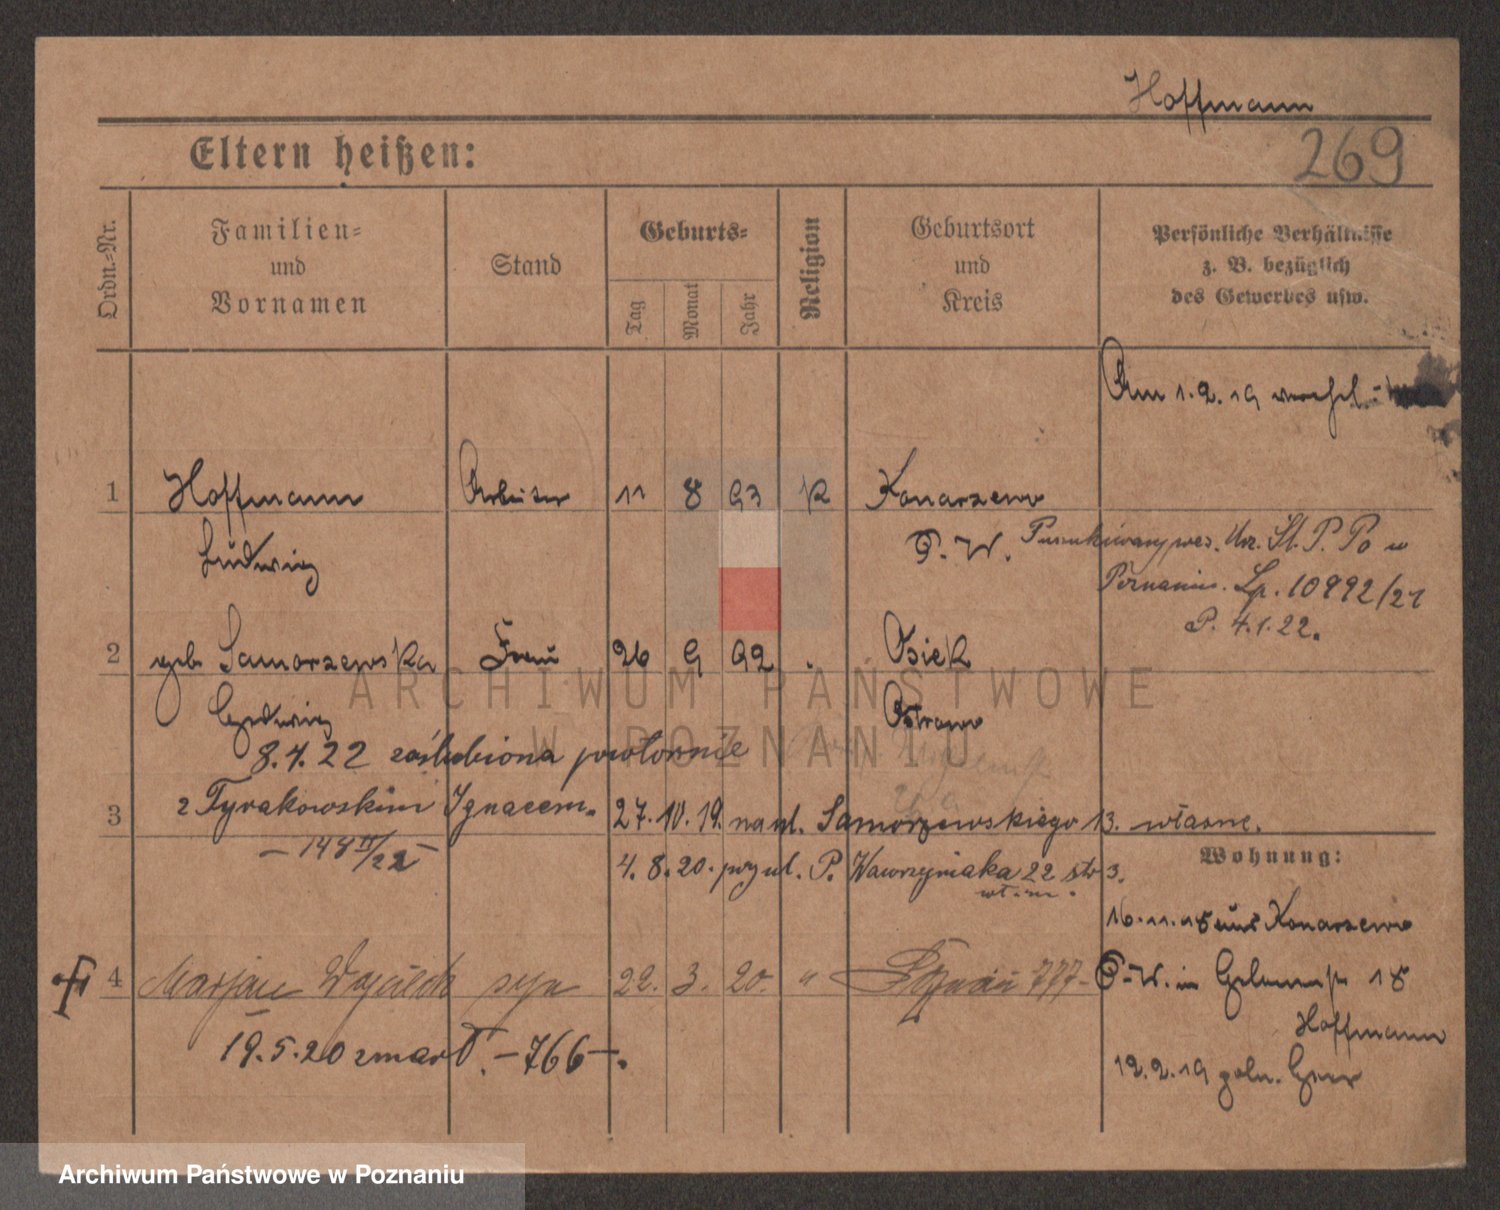 Hoffmann
269
Eltern heißen:
Ordn.-Nr.
Familien-
und
Vornamen
Stand
Geburts-
Tag
Monat
Jahr
Religion
Geburtsort
und
Kreis
Persönliche Verhältnisse
z. B. bezüglich
des Gewerbes usw.
Am 1.2.19
1 Hoffmann Arbeiter 11 8 93 K Konarzewo
Ludwig P.-W.
Urz. St. P. Po w
Poznaniu. Lp. 10992/21
P. 4.1.22.
2 geb Samorzewska Frau 26 9 92 Osiek
Hedwig Ostrowo
8.4.22 zaślubiona powtornie
3 z Tyrakowskim Ignacem. 27.10.19. na ul. Samorzewskiego 13. własne.
– 148 II/22 –
4.8.20. przy ul. P. Wawrzyniaka 22 str 3.
Wohnung:
16.11.18 aus Konarzewo
P.-W. in 18
Hoffmann
4 Marjan syn 22. 3. 20. " Poznań 777-
19.5.20 zmarł. – 766 –.
12.2.19 poln.
ARCHIWUM PAŃSTWOWE
W POZNANIU
Archiwum Państwowe w Poznaniu